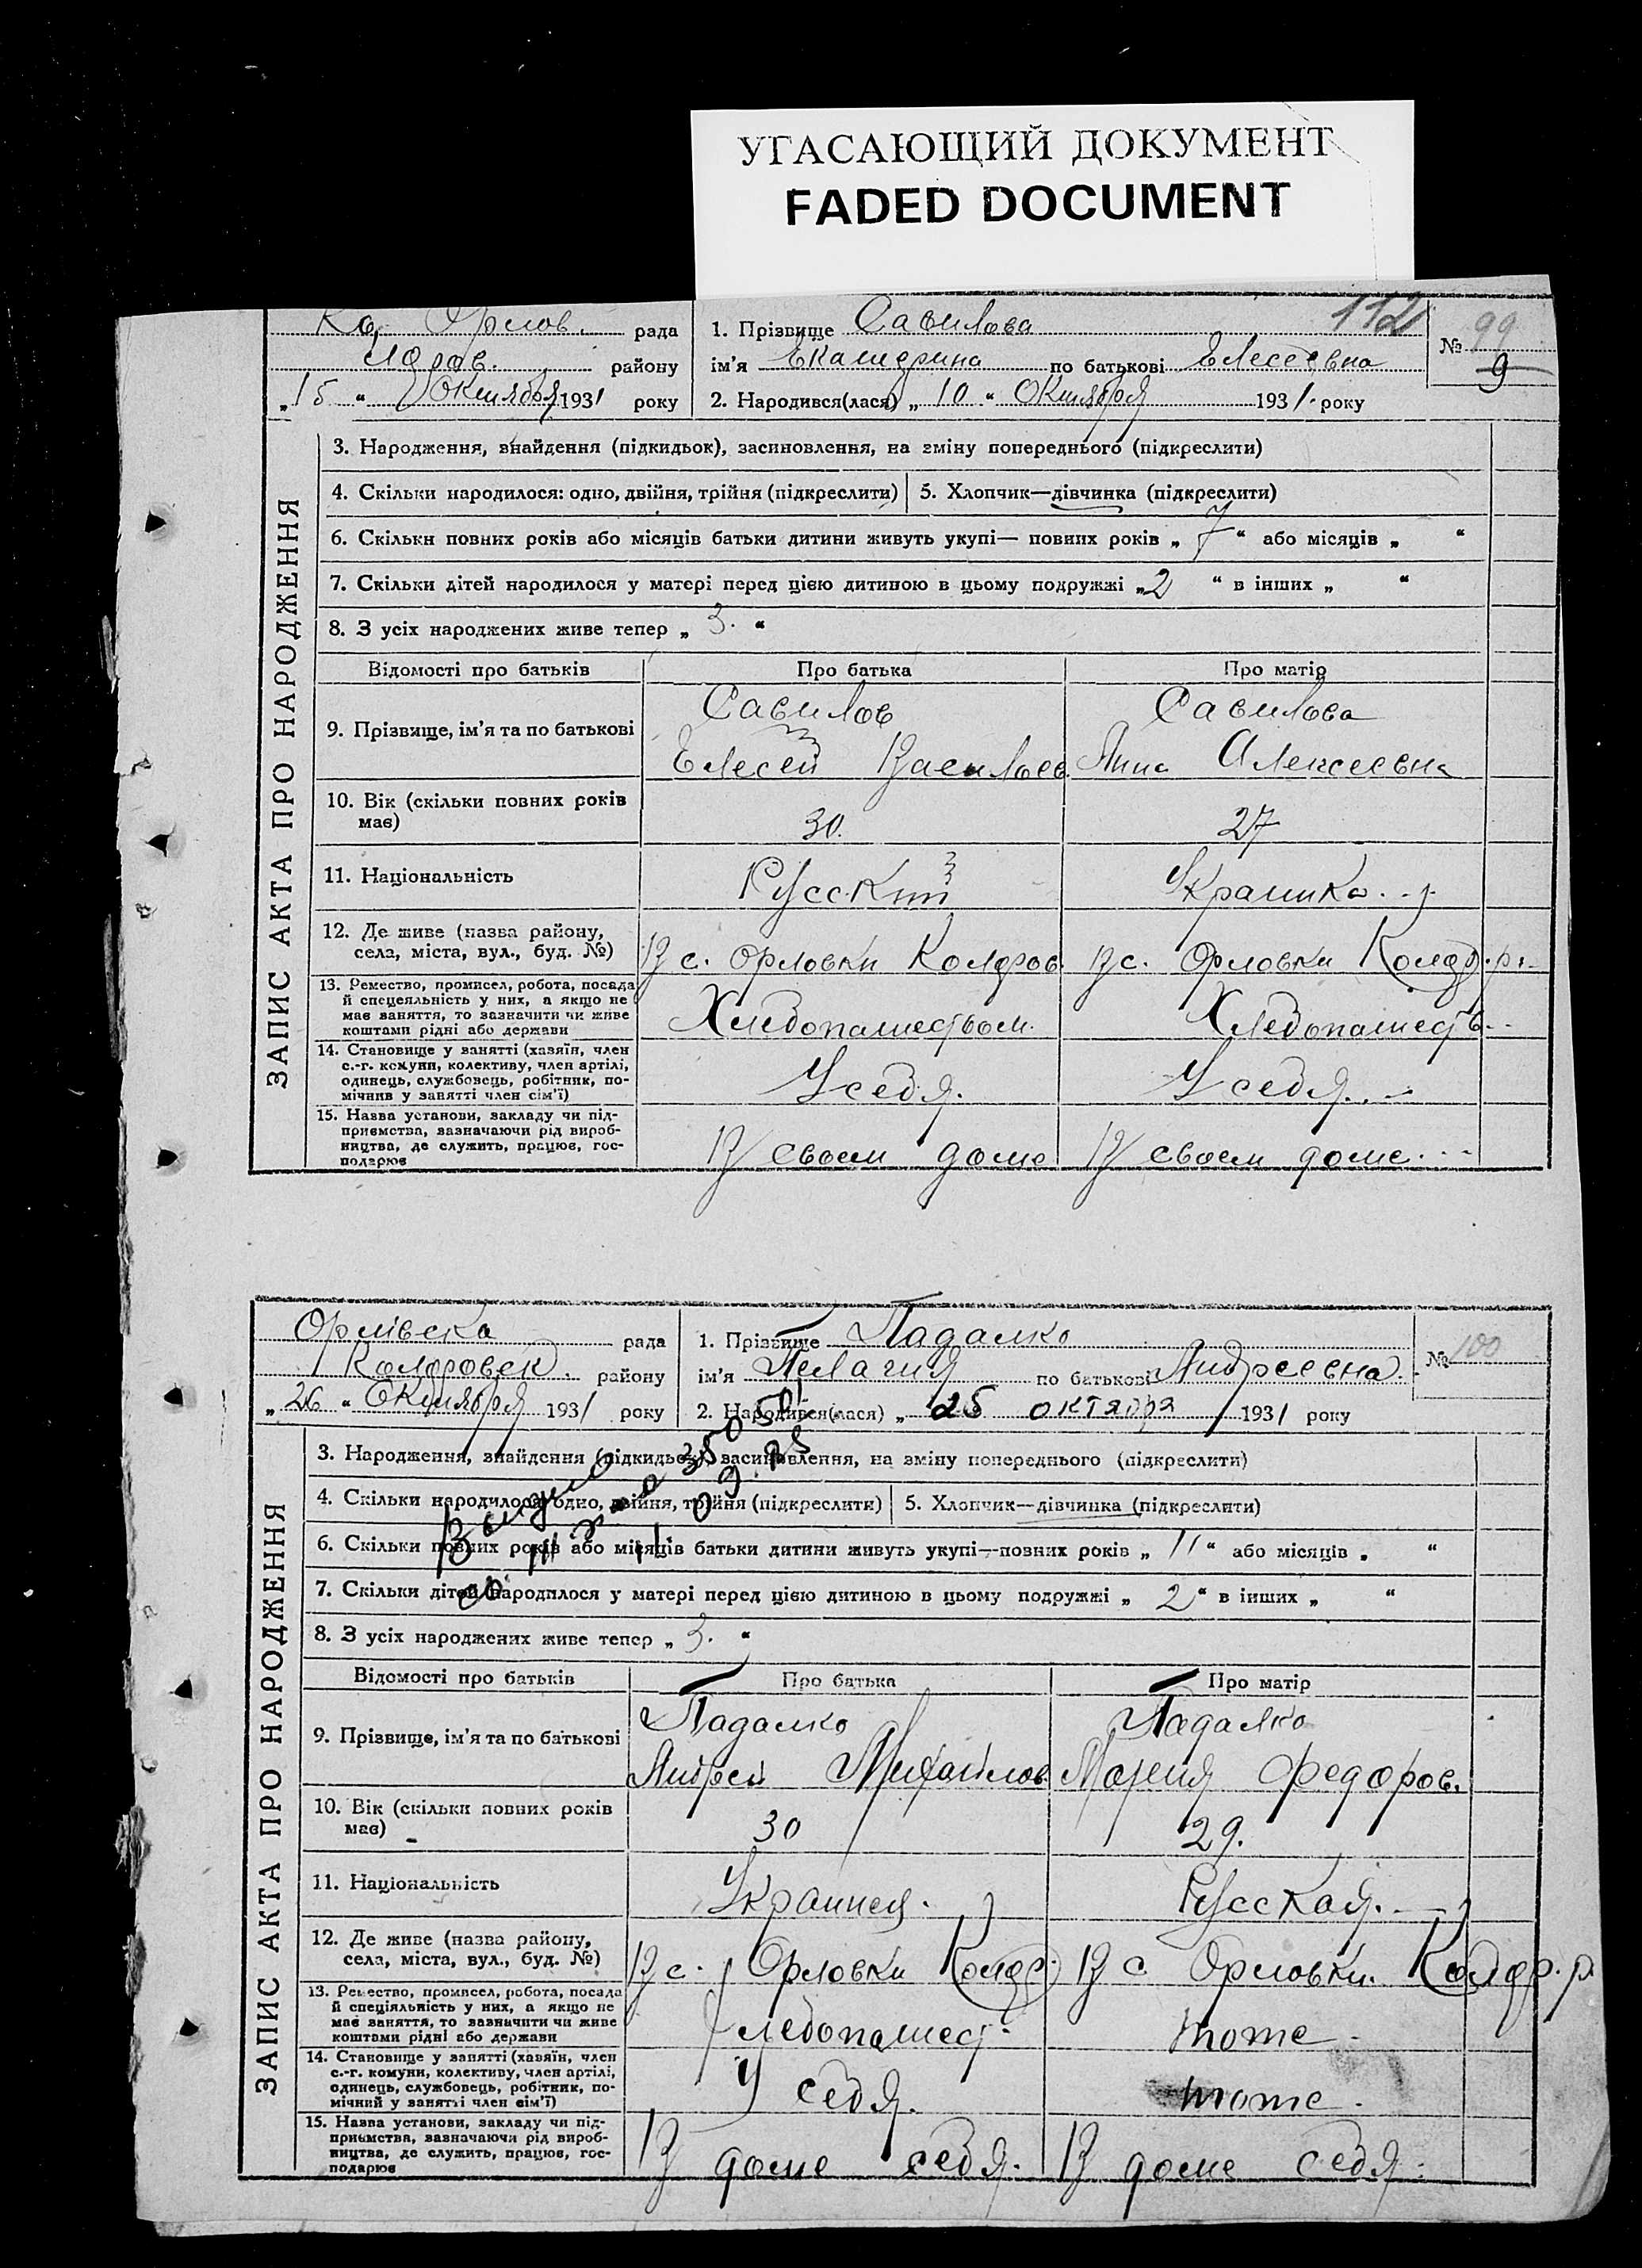 УГАСАЮЩИЙ ДОКУМЕНТ
FADED DOCUMENT
Орлов. рада
району
„ 15 “ Октября 1931 року
1. Прізвище Савилова 112
ім’я Екатерина по батькові Елесеевна
2. Народився(лася) „ 10 “ Октября 1931. року
№ 99
9
ЗАПИС АКТА ПРО НАРОДЖЕННЯ
3. Народження, знайдення (підкидьок), засиновлення, на зміну попереднього (підкреслити)
4. Скільки народилося: одно, двійня, трійня (підкреслити)
5. Хлопчик—дівчинка (підкреслити)
6. Скільки повних років або місяців батьки дитини живуть укупі— повних років „ 7 “ або місяців „ “
7. Скільки дітей народилося у матері перед цією дитиною в цьому подружжі „ 2 “ в інших „ “
8. З усіх народжених живе тепер „ 3. “
Відомості про батьків Про батька Про матір
9. Прізвище, ім’я та по батькові
Савилов
Елесей Васильев.
Савилова
Анна Алексеевна
10. Вік (скільки повних років
має)
30.
27
11. Національність
Русский
Украинка
12. Де живе (назва району,
села, міста, вул., буд. №)
В с. Орловки
В с. Орловки
13. Ремество, промисел, робота, посада
й спецеяльність у них, а якщо не
має заняття, то зазначити чи живе
коштами рідні або держави
Хлебопашеством.
Хлебопашеств.
14. Становище у занятті (хазяїн, член
с.-г. комуни, колективу, член артілі,
одинець, службовець, робітник, по-
мічнив у занятті член сім’ї)
У себя.
У себя.
15. Назва установи, закладу чи під-
приємства, зазначаючи рід вироб-
ництва, де служить, працює, гос-
подарює
В своем доме
В своем доме
Орлівска рада
району
„ 26 “ Октября 1931 року
1. Прізвище Падалко
ім’я Пелагия по батькові Андреевна.
2. Народився(лася) „ 25 октября 1931 року
№ 100
ЗАПИС АКТА ПРО НАРОДЖЕННЯ
3. Народження, знайдення (підкидьок), засиновлення, на зміну попереднього (підкреслити)
4. Скільки народилося: одно, двійня, трійня (підкреслити)
5. Хлопчик—дівчинка (підкреслити)
Выдано
6. Скільки повних років або місяців батьки дитини живуть укупі—повних років „ 11 “ або місяців „ “
7. Скільки дітей народилося у матері перед цією дитиною в цьому подружжі „ 2 “ в інших „ “
8. З усіх народжених живе тепер „ 3. “
Відомості про батьків Про батька Про матір
9. Прізвище, ім’я та по батькові
Падалко
Андрей Михайлов.
Падалко
Мария Федоров.
10. Вік (скільки повних років
має)
30
29.
11. Національність
Украинец.
Русская.
12. Де живе (назва району,
села, міста, вул., буд. №)
В с. Орловки
В с Орловки.
13. Ремество, промисел, робота, посада
й спеціяльність у них, а якщо не
має заняття, то зазначити чи живе
коштами рідні або держави
Хлебопашест.
тоже
14. Становище у занятті (хазяїн, член
с.-г. комуни, колективу, член артілі,
одинець, службовець, робітник, по-
мічний у занятті член сім’ї)
У себя.
тоже.
15. Назва установи, закладу чи під-
приємства, зазначаючи рід вироб-
ництва, де служить, працює, гос-
подарює
В доме себя.
В доме себя.